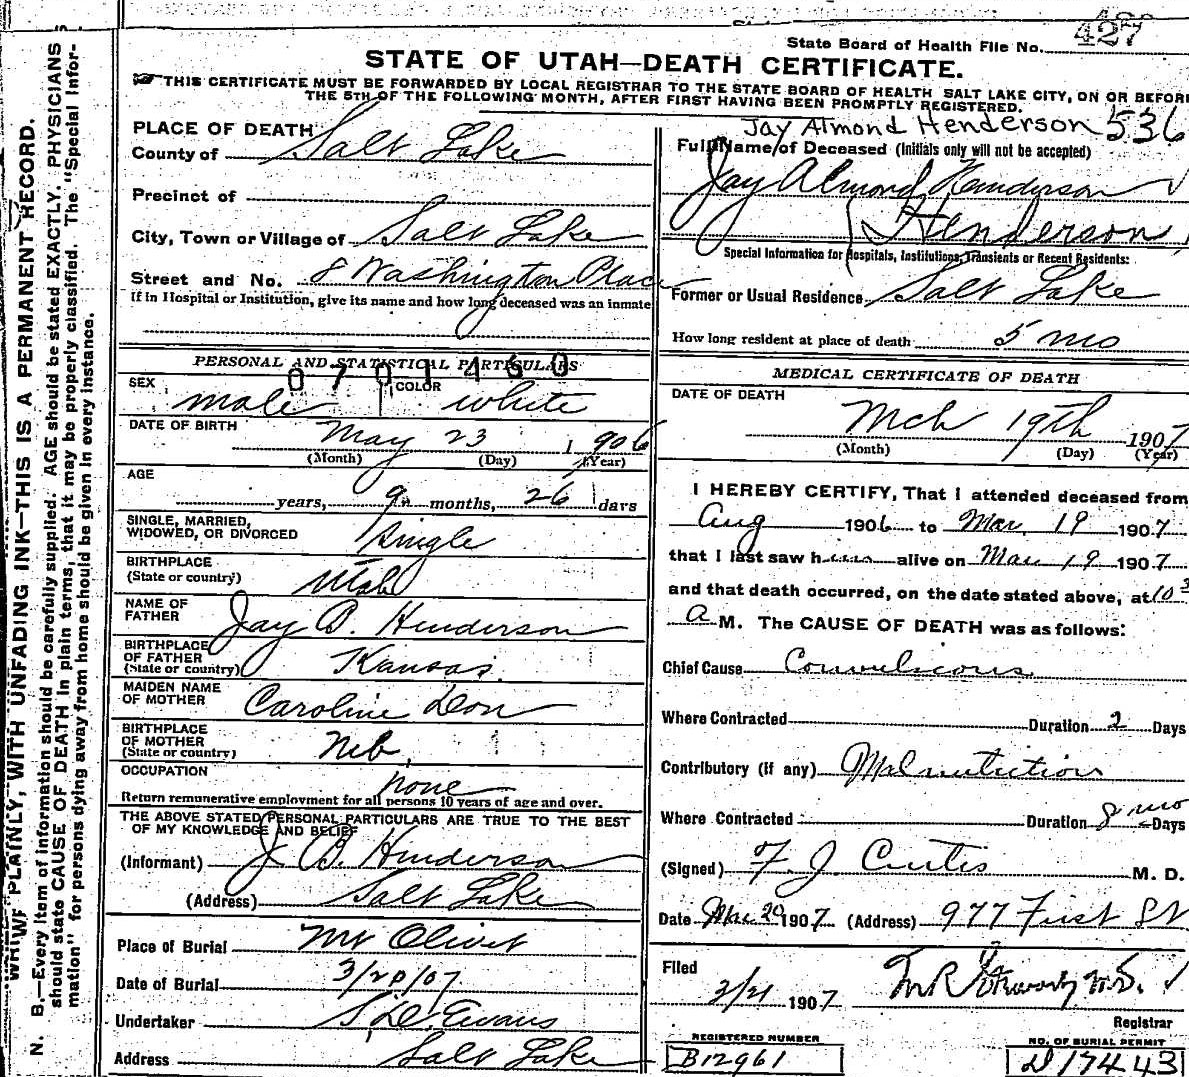 427
State Board of Health File No.
STATE OF UTAH—DEATH CERTIFICATE.
THIS CERTIFICATE MUST BE FORWARDED BY LOCAL REGISTRAR TO THE STATE BOARD OF HEALTH SALT LAKE CITY, ON OR BEFORE
THE 5TH OF THE FOLLOWING MONTH, AFTER FIRST HAVING BEEN PROMPTLY REGISTERED.
PLACE OF DEATH
County of Salt Lake
Precinct of
City, Town or Village of Salt Lake
Street and No. 8 Washington Place
If in Hospital or Institution, give its name and how long deceased was an inmate
PERSONAL AND STATISTICAL PARTICULARS
0701460
SEX male COLOR white
DATE OF BIRTH May 23 1906
(Month) (Day) (Year)
AGE
years, 9 months, 26 days
SINGLE, MARRIED,
WIDOWED, OR DIVORCED Single
BIRTHPLACE
(State or country) Utah
NAME OF
FATHER Jay B. Henderson
BIRTHPLACE
OF FATHER
(State or country) Kansas.
MAIDEN NAME
OF MOTHER Caroline Don
BIRTHPLACE
OF MOTHER
(State or country) Neb.
OCCUPATION none
Return remunerative employment for all persons 10 years of age and over.
THE ABOVE STATED PERSONAL PARTICULARS ARE TRUE TO THE BEST
OF MY KNOWLEDGE AND BELIEF
(Informant) J B. Henderson
(Address) Salt Lake
Place of Burial Mt Olivet
Date of Burial 3/20/07
Undertaker S. D. Evans
Address Salt Lake
Jay Almond Henderson 536
Full Name of Deceased (Initials only will not be accepted)
Jay Almond Henderson
Henderson
Special Information for Hospitals, Institutions, Transients or Recent Residents:
Former or Usual Residence Salt Lake
How long resident at place of death 5 mo
MEDICAL CERTIFICATE OF DEATH
DATE OF DEATH
Mch 19th 1907
(Month) (Day) (Year)
I HEREBY CERTIFY, That I attended deceased from
Aug 1906 to Mar. 19 1907
that I last saw him alive on Mar 19 1907
and that death occurred, on the date stated above, at 10 3
a M. The CAUSE OF DEATH was as follows:
Chief Cause Convulsions
Where Contracted Duration 2 Days
Contributory (if any) Malnutrition
Where Contracted Duration 8 mo Days
(Signed) F. J. Curtis M. D.
Date Mar 20 1907 (Address) 977 First St
Filed
1907
Registrar
REGISTERED NUMBER
B12961
NO. OF BURIAL PERMIT
D17443
WRITE PLAINLY, WITH UNFADING INK—THIS IS A PERMANENT RECORD.
N. B.—Every item of information should be carefully supplied. AGE should be stated EXACTLY. PHYSICIANS
should state CAUSE OF DEATH in plain terms, that it may be properly classified. The "Special Infor-
mation" for persons dying away from home should be given in every instance.